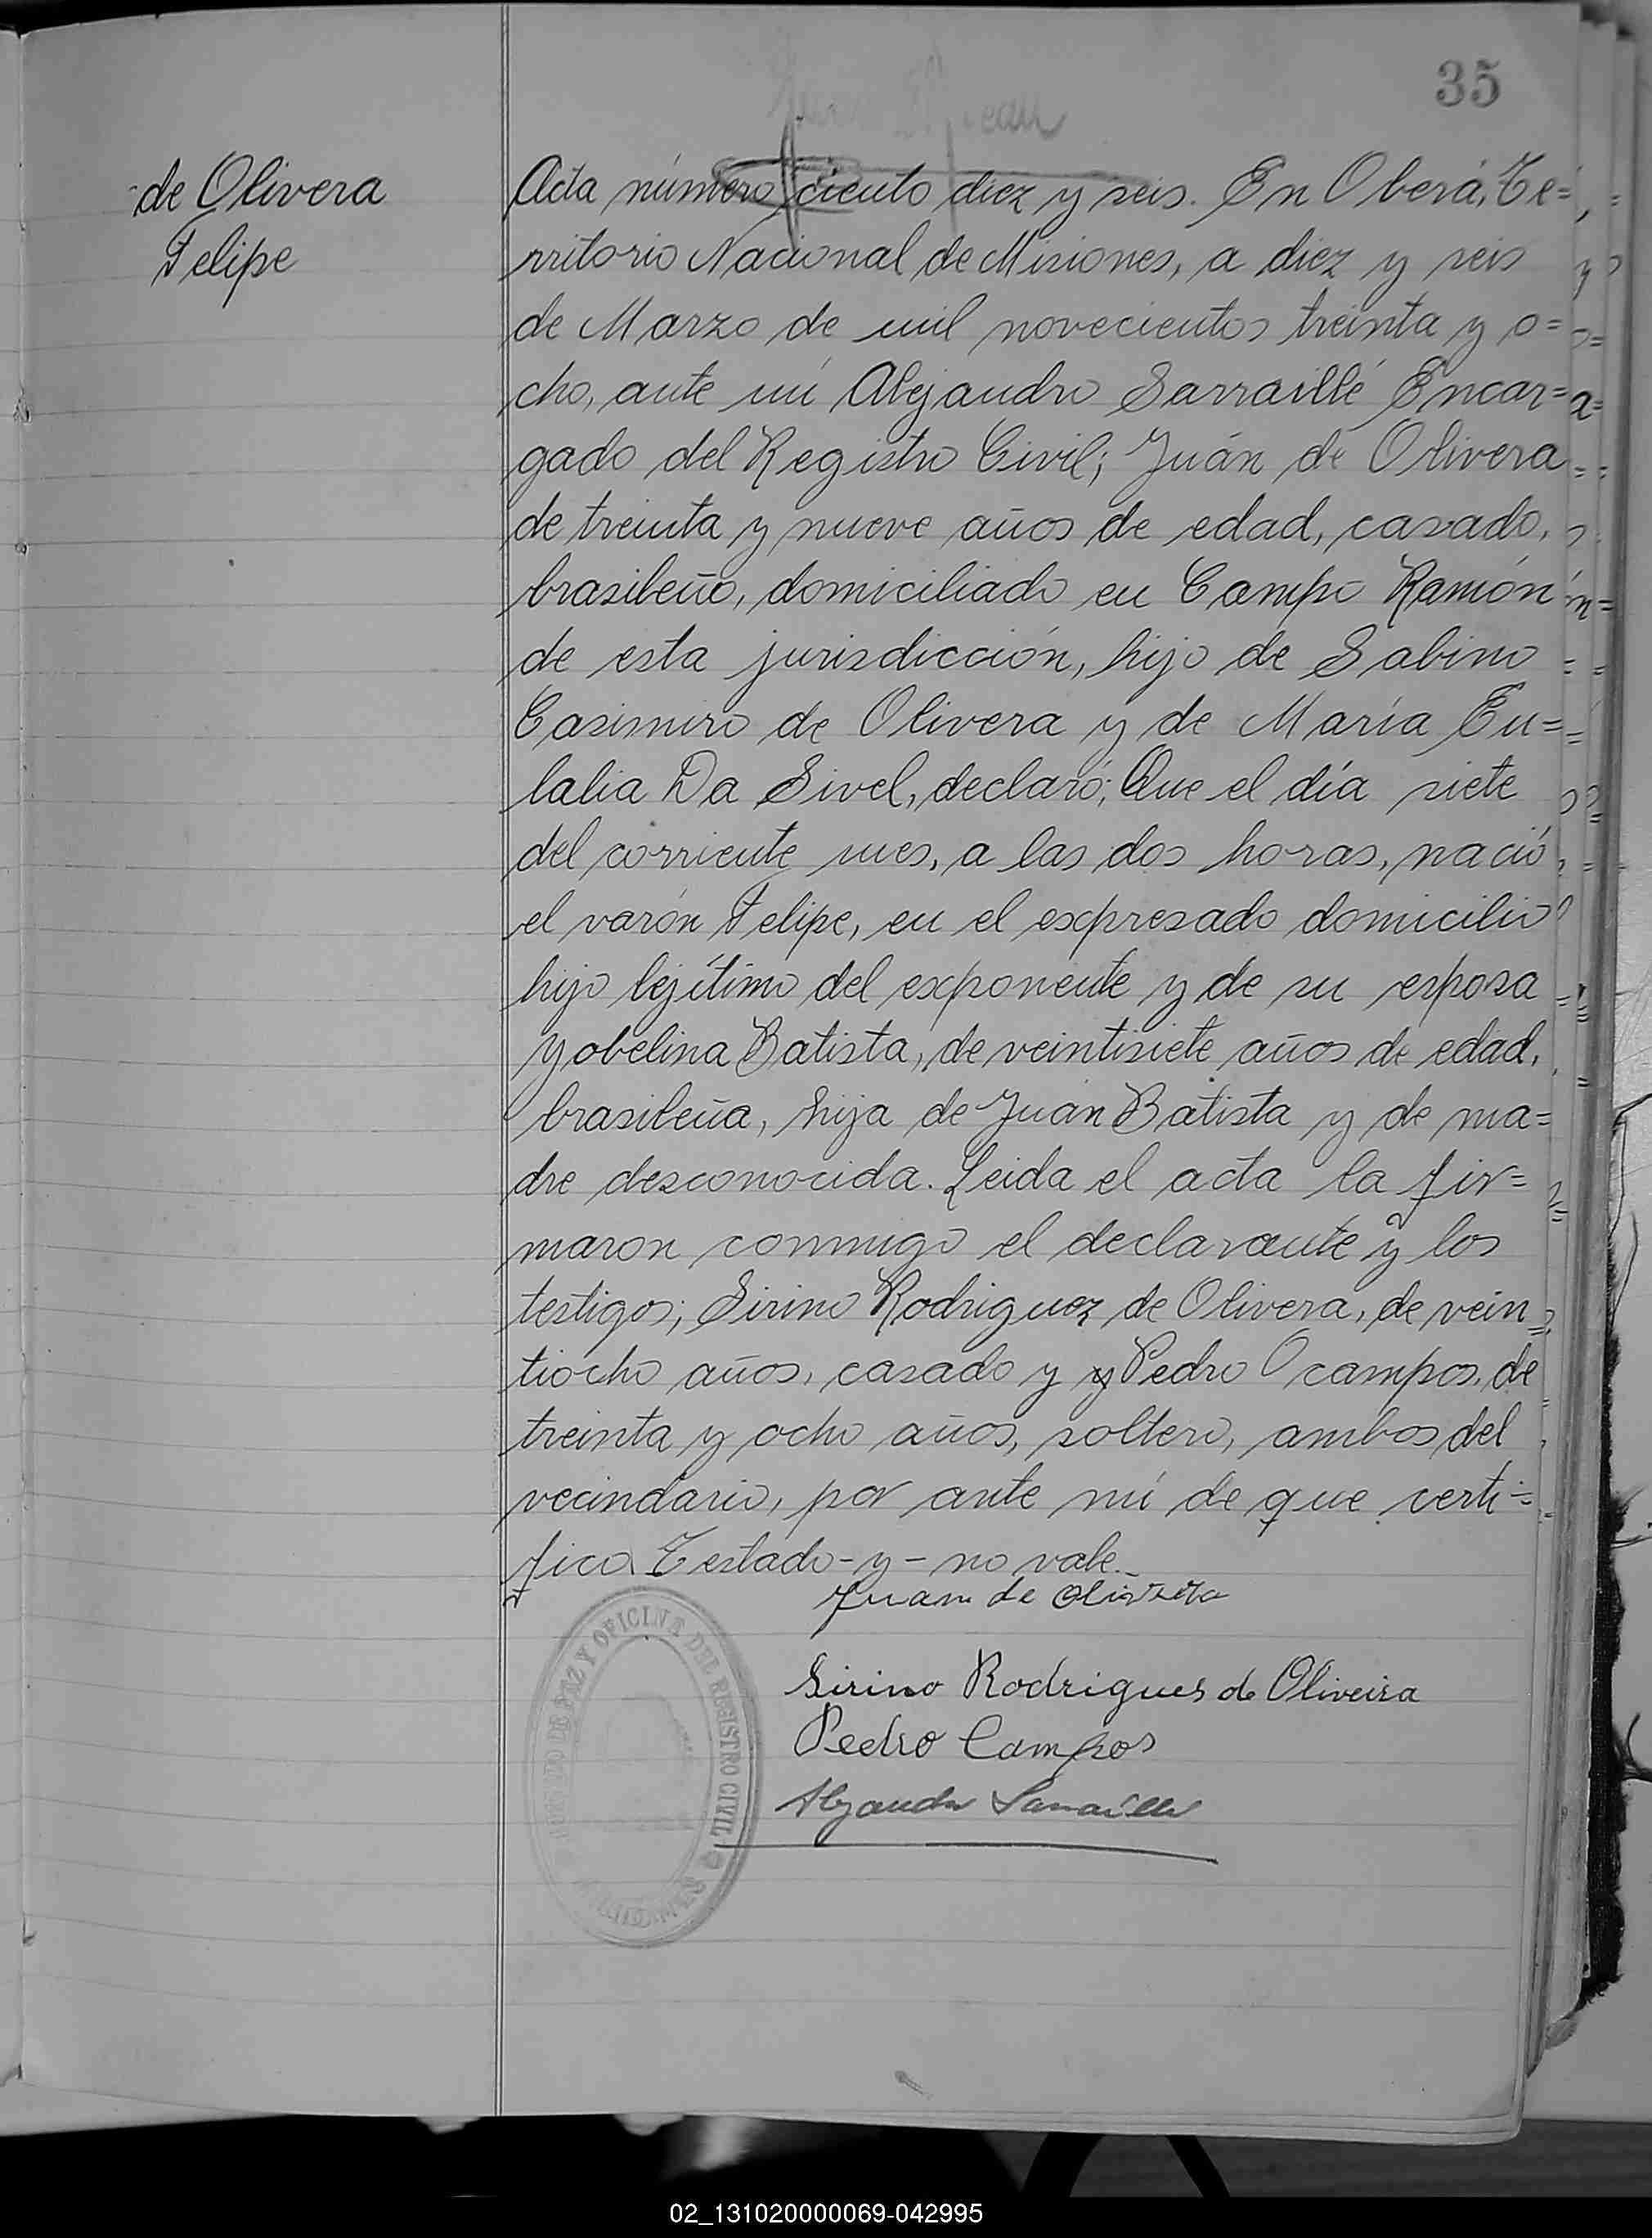 35
de Olivera
Felipe
Acta número ciento diez y seis. En Oberá, Te=
rritorio Nacional de Misiones, a diez y seis
de Marzo de mil novecientos treinta y o=
cho, ante mí Alejandro Sarraillé Encar=
gado del Registro Civil; Juán de Olivera
de treinta y nueve años de edad, casado,
brasileño, domiciliado en Campo Ramón
de esta jurisdicción, hijo de Sabino
Casimiro de Olivera y de María Eu=
lalia Da Sivel, declaró: Que el día siete
del corriente mes, a las dos horas, nació
el varón Felipe, en el expresado domicilio
hijo lejítimo del exponente y de su esposa
Yobelina Batista, de veintisiete años de edad,
brasileña, hija de Juán Batista y de ma=
dre desconocida. Leida el acta la fir=
maron conmigo el declarante y los
testigos; Sirino Rodriguez de Olivera, de vein=
tiocho años, casado y y Pedro Ocampos, de
treinta y ocho años, soltero, ambos del
vecindario, por ante mí de que certi=
fico. Testado-y-no vale.
Juan de Olivera
Sirino Rodrigues de Oliveira
Pedro Campos
Alejandro Sarraillé
JUZGADO DE PAZ Y OFICINA DEL REGISTRO CIVIL
MISIONES
02_131020000069-042995